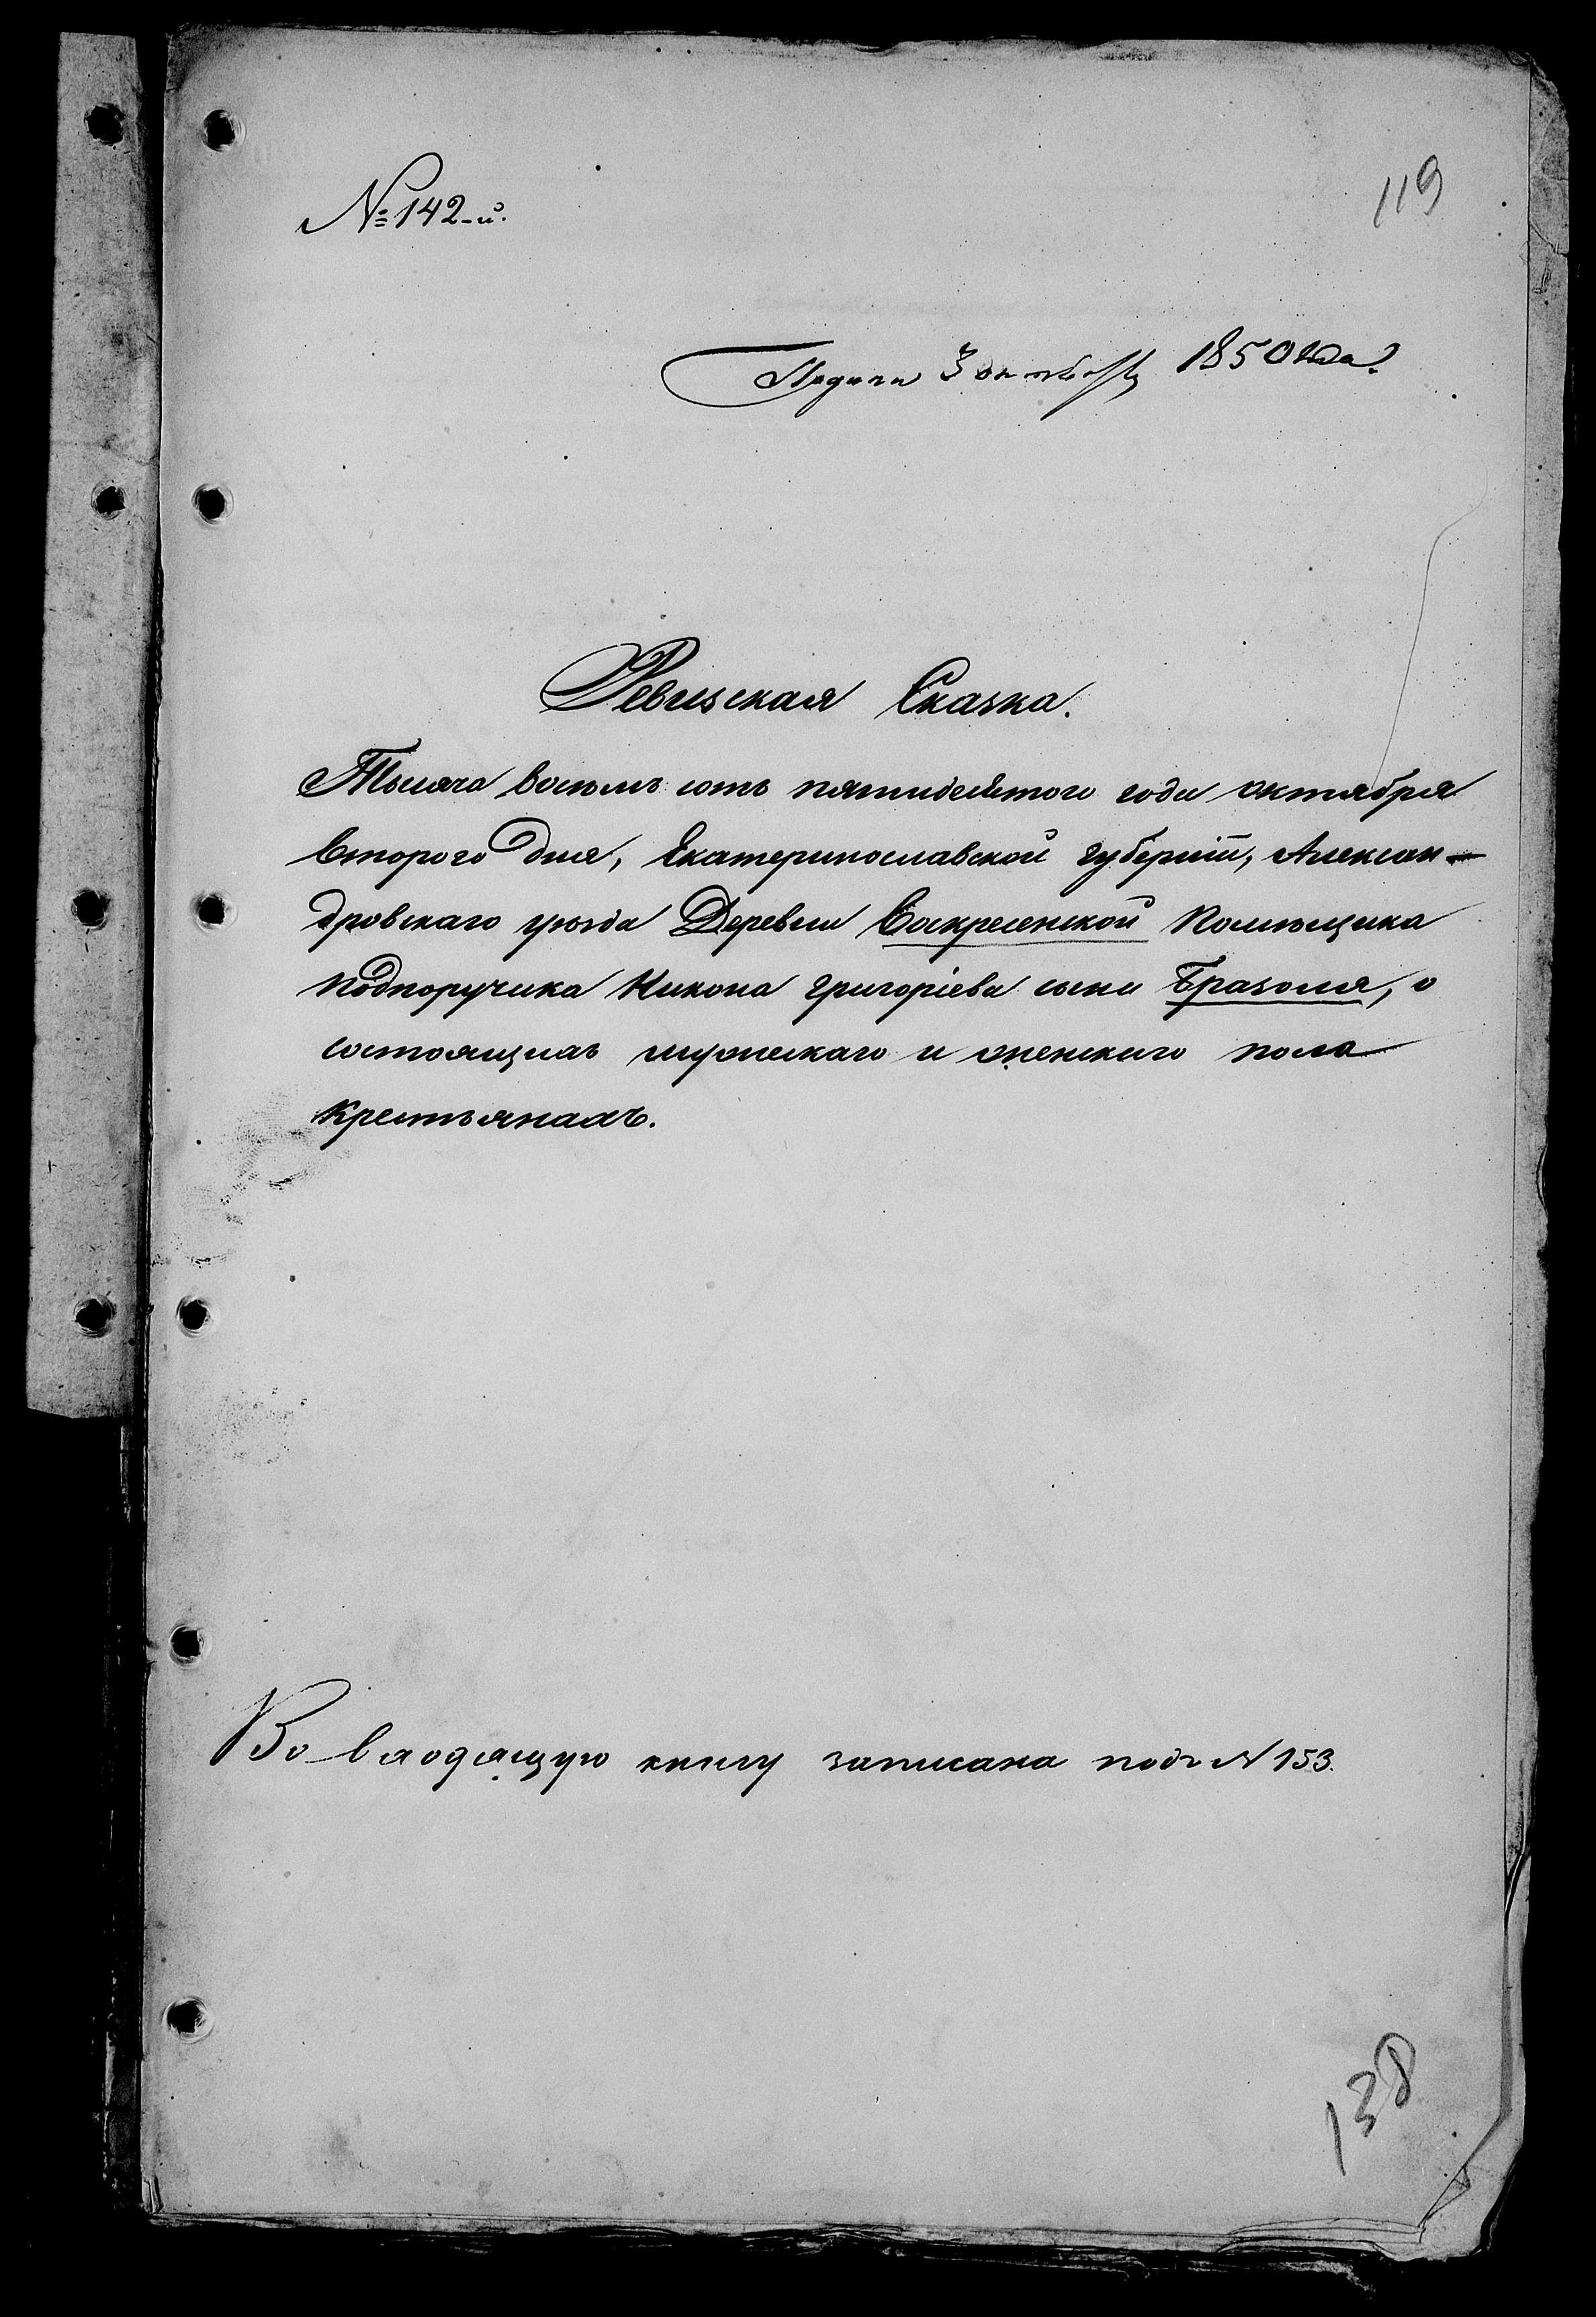 № 142-й.
119
Подана 3 октября 1850 года.
Ревизская Сказка.
Тысяча восемь сотъ пятидесятого года октября
второго дня, Екатеринославской губерніи, Алексан-
дровскаго уѣзда Деревни Воскресенской Помѣщика
подпоручика Никона Григоріева сына Бразоля, о
состоящихъ мужескаго и женскаго пола
крестьянахъ.
Во входящую книгу записана подъ № 153.
138